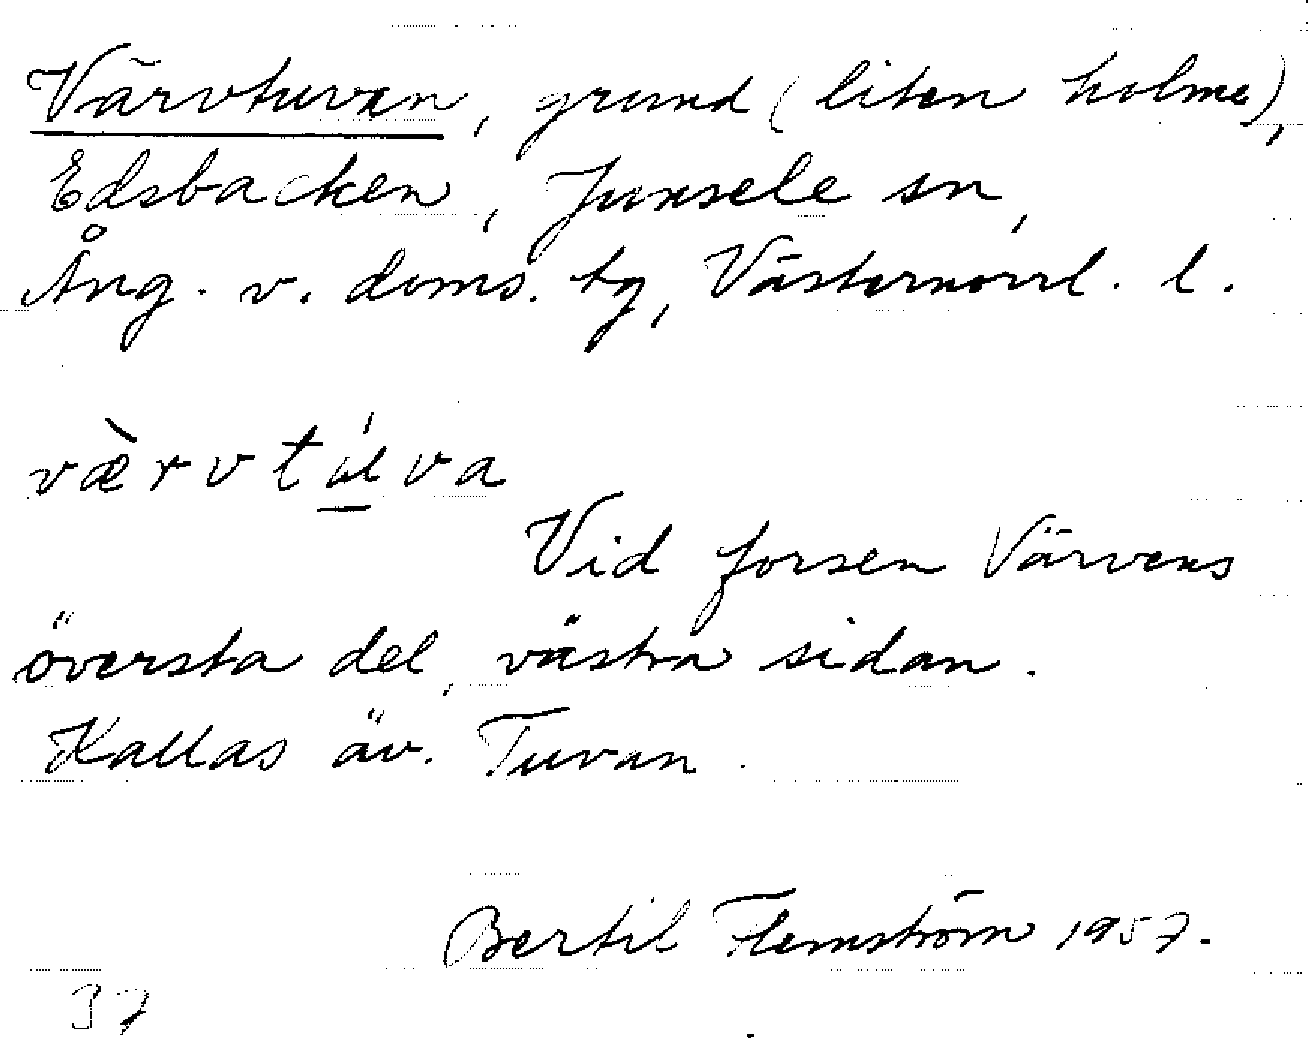 Värvtuvan, grund (liten holme),
Edsbacken, Junsele sn,
Ång. v. doms. tg, Västernorrl. l.
væ̀rvtú̲va
Vid forsen Värvens
översta del, västra sidan.
Kallas äv. Tuvan.
Bertil Flemström 1957.
37